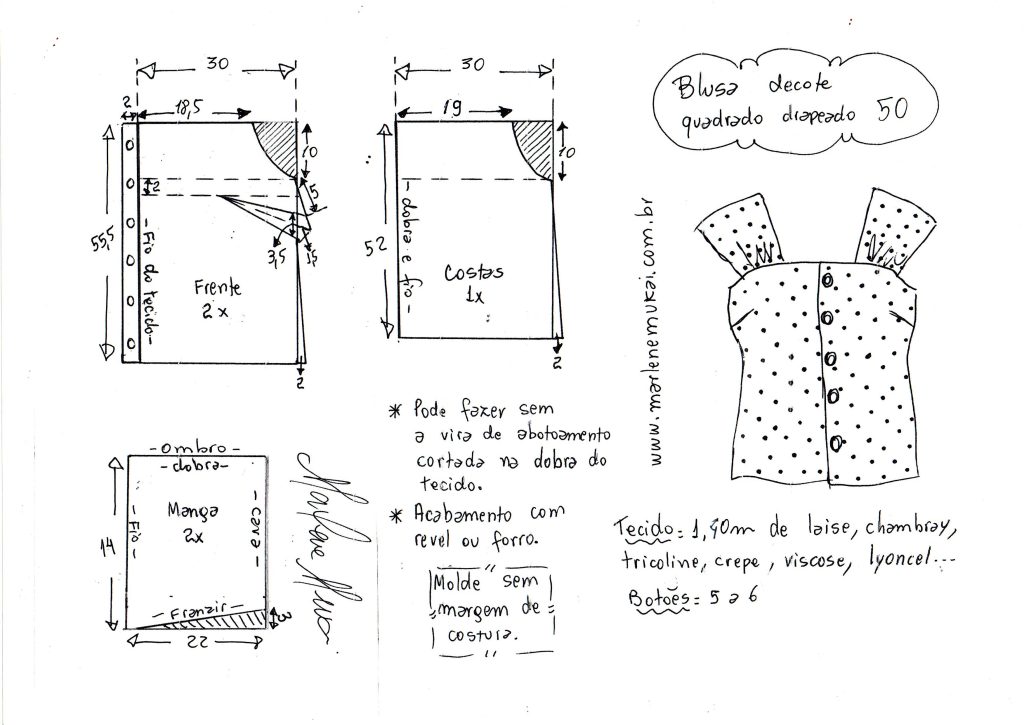 Blusa decote
quadrado drapeado 50
30
2
18,5
10
2
5
55,5
3,5
1,5
- Fio do tecido -
Frente
2x
2
30
19
10
52
- dobra e fio -
Costas
1x
2
www.marlenemukai.com.br
- ombro -
- dobra -
Manga
2x
- Fio -
- cava -
14
- Franzir -
3
22
* Pode fazer sem
a vira de abotoamento
cortada na dobra do
tecido.
* Acabamento com
revel ou forro.
Molde sem
margem de
costura.
Tecido = 1,40m de laise, chambray,
tricoline, crepe, viscose, lyoncel...
Botões = 5 a 6